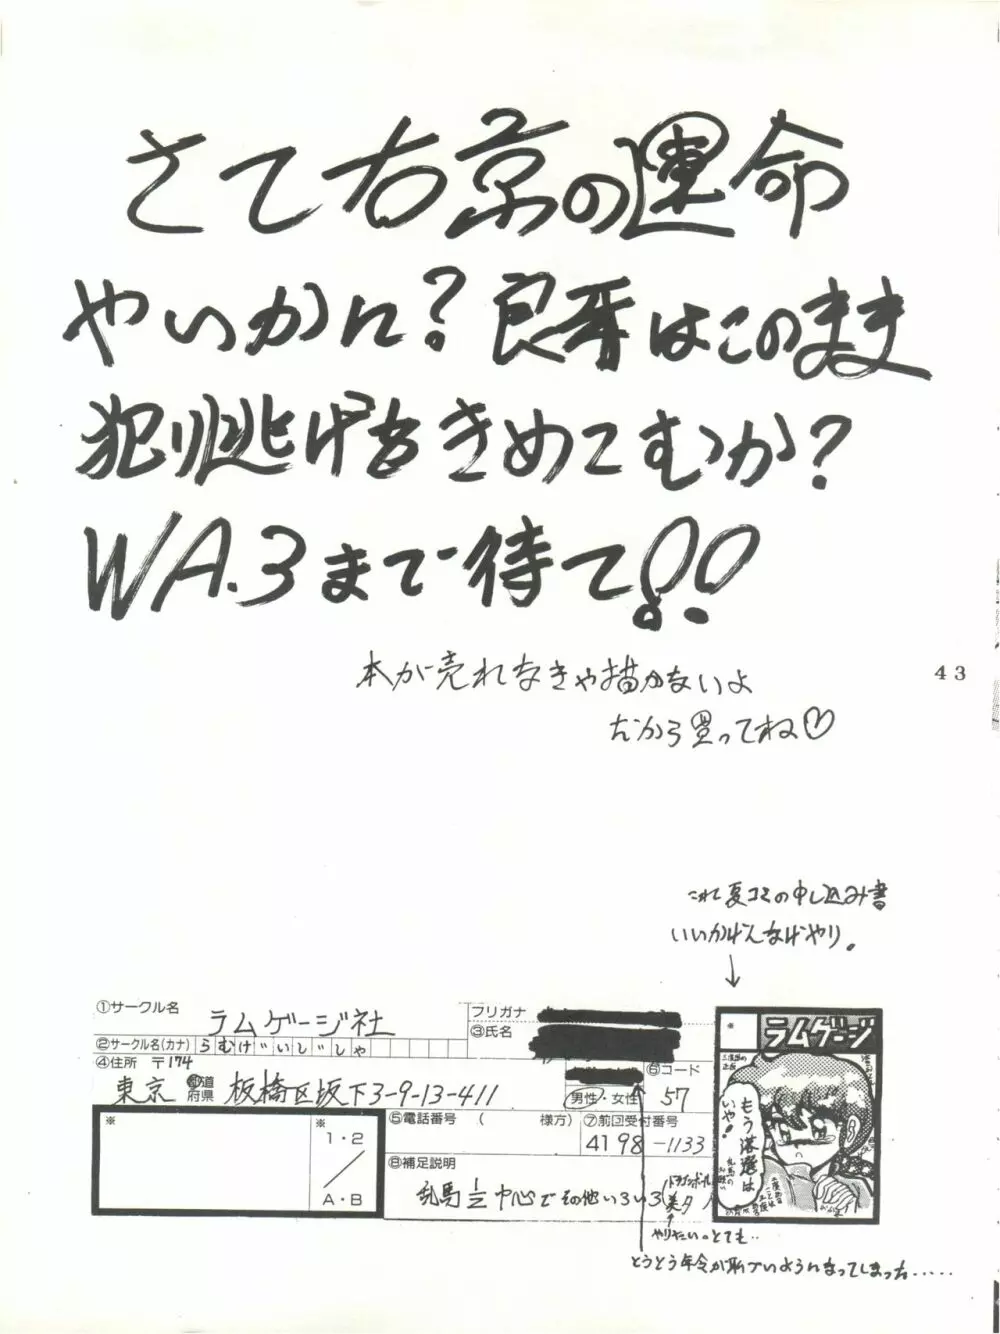 さて右京の運命
やいかに?良牙はこのまま
犯り逃げをきめてむか?
WA.3まで待て!!
本が売れなきゃ描かないよ
43
だから買ってね♡
これ夏コミの申し込み書
いいかげんなげやり。
①サークル名 ラムゲージ社
フリガナ
③氏名
②サークル名(カナ) らむげいじしゃ
④住所 〒174
東京 都道府県 板橋区坂下3-9-13-411
男性・女性
⑥コード
57
⑤電話番号 ( 様方)
⑦前回受付番号
4198-1133
※
※
1・2
A・B
⑧補足説明
乱馬½中心でその他いろいろ(ドラゴンボール 美夕
やりたいのとても..
とうとう年令が恥ずいようになってしまった.....
※
ラムゲージ
もう落選は
いや!